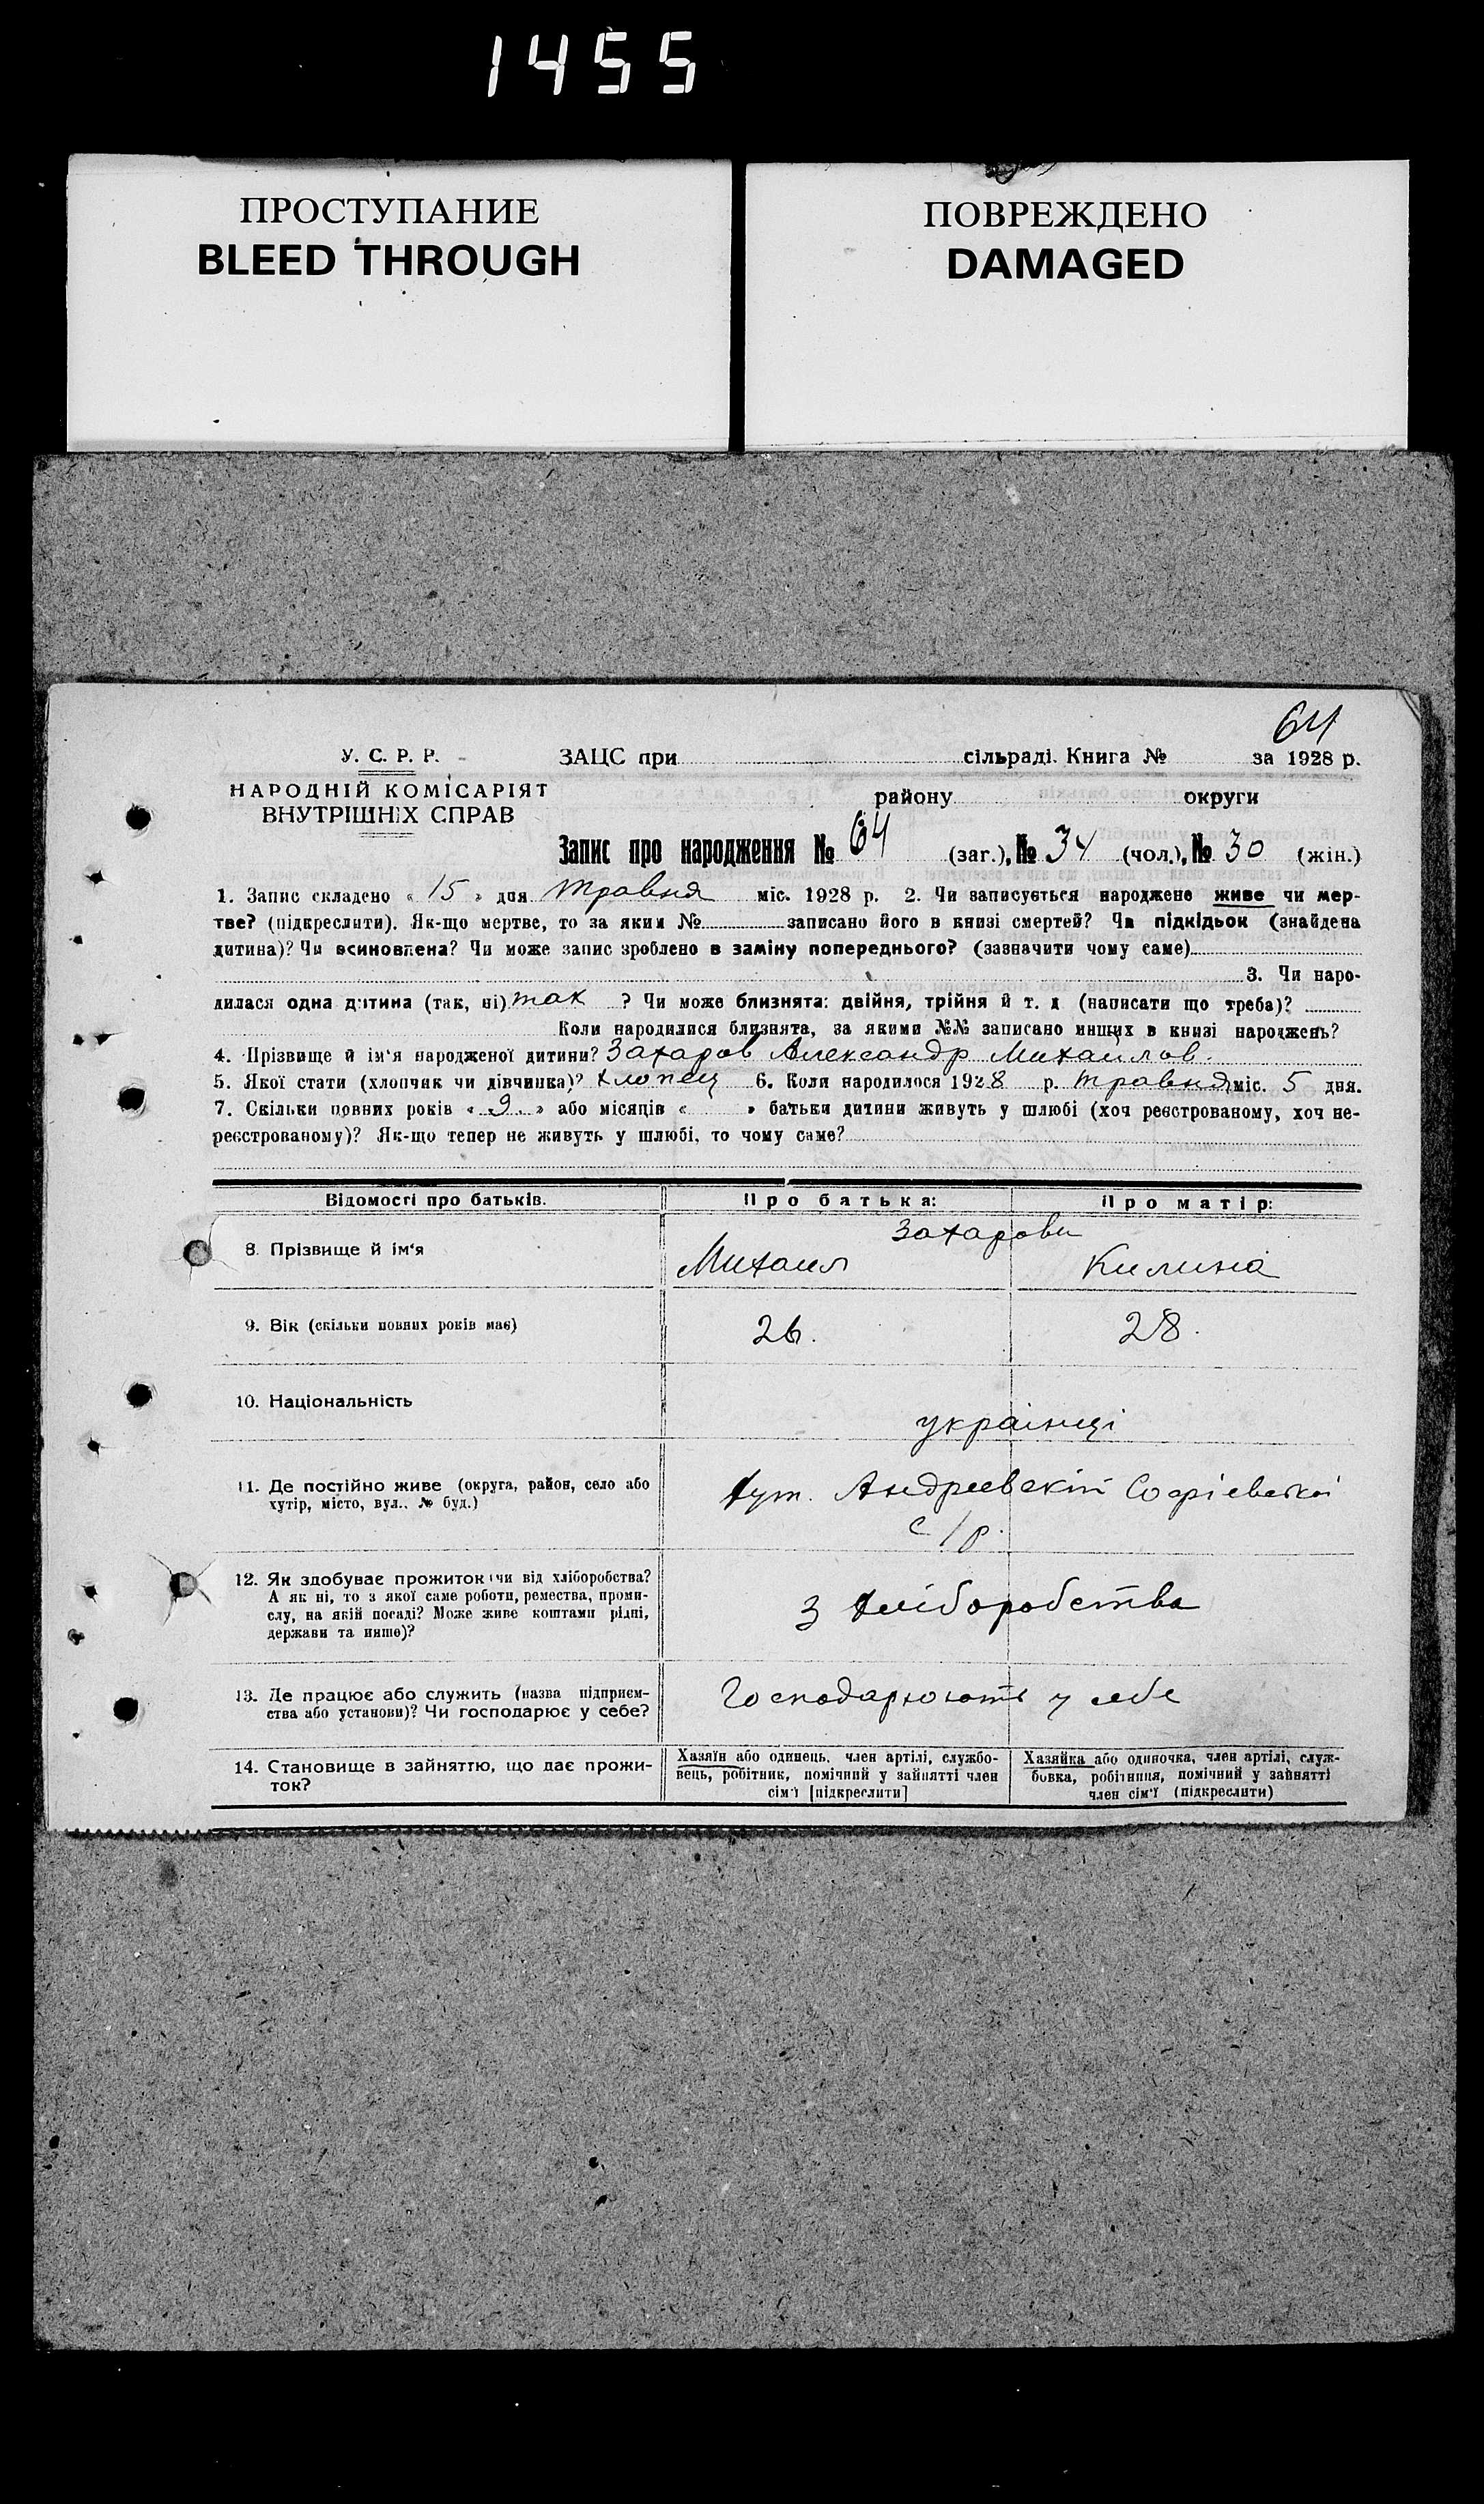 1455
ПРОСТУПАНИЕ
BLEED THROUGH
ПОВРЕЖДЕНО
DAMAGED
64
У. С. Р. Р.
НАРОДНІЙ КОМІСАРІЯТ
ВНУТРІШНІХ СПРАВ
ЗАЦС при сільраді. Книга № за 1928 р.
району округи
Запис про народження № 64 (заг.), № 34 (чол.), № 30 (жін.)
1. Запис складено « 15 » дня травня міс. 1928 р. 2. Чи записується народжене живе чи мер-
тве? (підкреслити). Як-що мертве, то за яким № записано його в книзі смертей? Чи підкідьок (знайдена
дитина)? Чи всиновлена? Чи може запис зроблено в заміну попереднього? (зазначити чому саме)
3. Чи наро-
дилася одна дитина (так, ні) так ? Чи може близнята: двійня, трійня й т. д (написати що треба)?
Коли народилися близнята, за якими №№ записано инших в книзі народжень?
4. Прізвище й ім'я народженої дитини? Захаров Александр Михайлов.
5. Якої стати (хлопчик чи дівчинка)? хлопец 6. Коли народилося 1928 р. травня міс. 5 дня.
7. Скільки повних років « 9 » або місяців « » батьки дитини живуть у шлюбі (хоч реєстрованому, хоч не-
реєстрованому)? Як-що тепер не живуть у шлюбі, то чому саме?
Відомості про батьків. Про батька: Про матір:
Захарови
8. Прізвище й ім'я Михаил Килина
9. Вік (скільки повних років має) 26. 28.
10. Національність
українці
11. Де постійно живе (округа, район, село або
хутір, місто, вул., № буд.)
хут. Андреевскій Софіевской
с/р.
12. Як здобуває прожиток (чи від хліборобства?
А як ні, то з якої саме роботи, ремества, проми-
слу, на якій посаді? Може живе коштами рідні,
держави та инше)?
з хліборобства
13. Де працює або служить (назва підприєм-
ства або установи)? Чи господарює у себе?
Господарюють у себе
14. Становище в зайняттю, що дає прожи-
ток?
Хазяїн або одинець, член артілі, службо-
вець, робітник, помічний у зайнятті член
сім'ї [підкреслити]
Хазяйка або одиночка, член артілі, служ-
бовка, робітниця, помічний у зайнятті
член сім'ї (підкреслити)